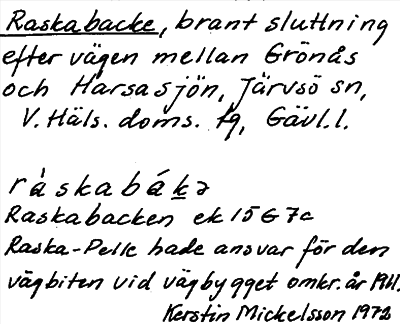 Raskabacke, brant sluttning
efter vägen mellan Grönås
och Harsasjön, Järvsö sn,
V. Häls. doms. tg, Gävl. l.
ráskabákə
Raskabacken ek 15G 7c
Raska-Pelle hade ansvar för den
vägbiten vid vägbygget omkr. år 1911.
Kerstin Mickelsson 1972